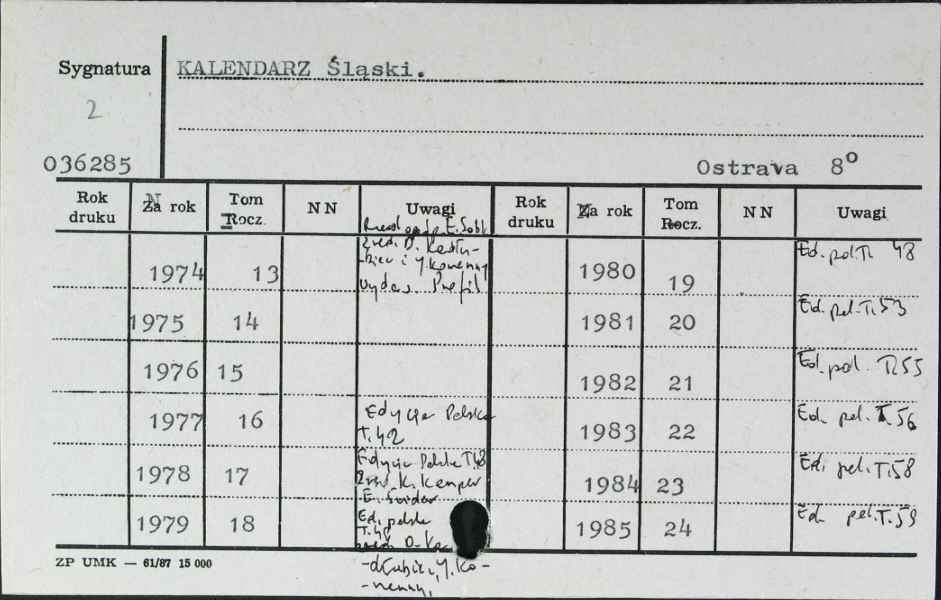 Sygnatura KALENDARZ Śląski.
2
036285 Ostrava 8°
Rok druku Za rok Tom Rocz. NN Uwagi Rok druku Za rok Tom Rocz. NN Uwagi
1974 13 wydaw. Profil 1980 19 Ed. pol. 48
1975 14 1981 20 Ed. pol. T. 53
1976 15 1982 21 Ed. pol. T. 55
1977 16 Edycja Polska T. 42 1983 22 Ed. pol. T. 56
1978 17 Edycja Polska 1984 23 Ed. pol. T. 58
1979 18 Ed. polska 1985 24 Ed. pol. T. 59
ZP UMK — 61/87 15 000